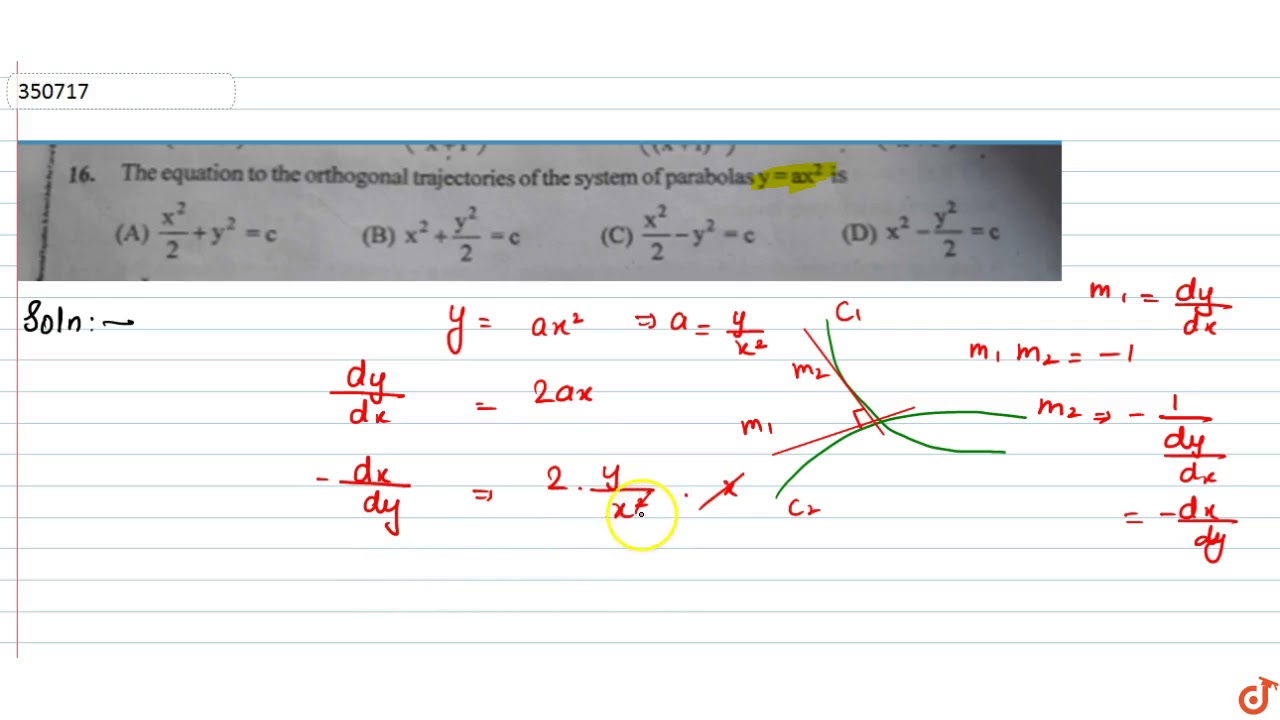 350717
16. The equation to the orthogonal trajectories of the system of parabolas y = ax² is
(A) x²/2 + y² = c (B) x² + y²/2 = c (C) x²/2 − y² = c (D) x² − y²/2 = c
Soln:~
y = ax² ⇒ a = y/x²
dy/dx = 2ax
-dx/dy ⇒ 2 · y/x² · x
C1
m2
m1
C2
m1 = dy/dx
m1 m2 = -1
m2 ⇒ - 1/(dy/dx)
= -dx/dy